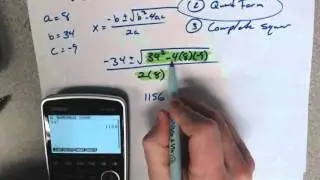 a = 8
b = 34
c = -9
x = -b ± √b²-4ac
2a
② Quad Form
③ Complete Squar
-34 ± √34² - 4(8)(-9)
2(8)
1156